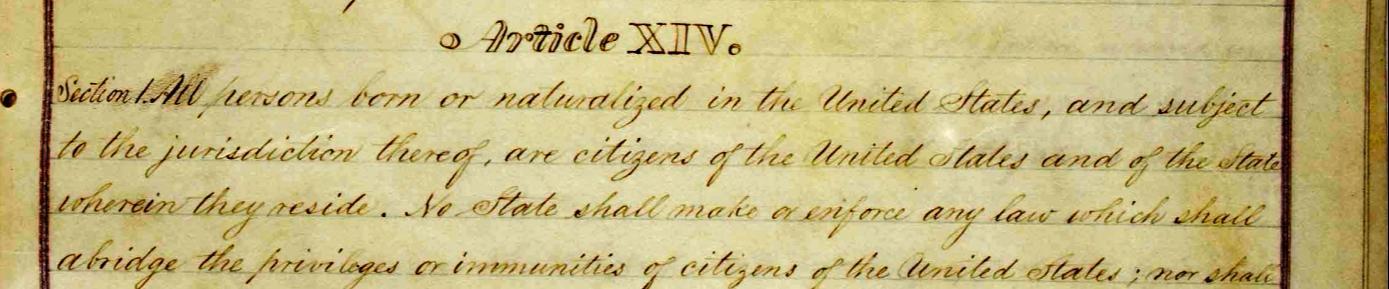 Article XIV.
Section 1. All persons born or naturalized in the United States, and subject
to the jurisdiction thereof, are citizens of the United States and of the State
wherein they reside. No State shall make or enforce any law which shall
abridge the privileges or immunities of citizens of the United States; nor shall